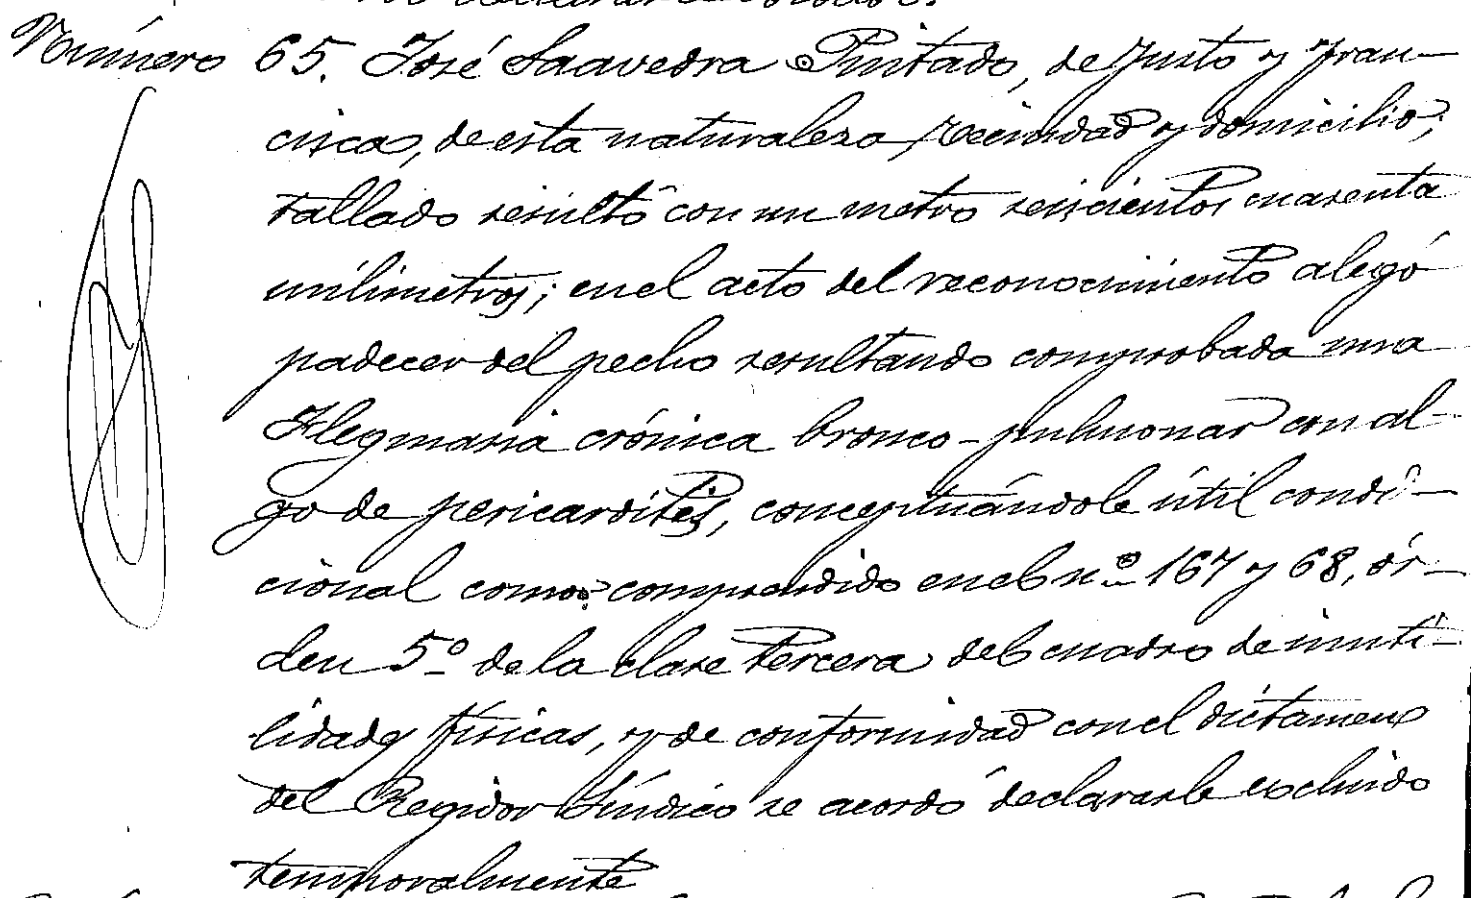 Número 65. José Saavedra Pintado, de Justo y Fran-
cisca, de esta naturaleza, vecindad y domicilio;
tallado resultó con un metro seiscientos cuarenta
milimetros; en el acto del reconocimiento alegó
padecer del pecho resultando comprobada una
Flegmasia crónica bronco-pulmonar con al-
go de pericarditis, conceptuándole útil condi-
cional como comprendido en el nº 167 y 68, ór-
den 5º de la clase tercera del cuadro de inuti-
lidades físicas, y de conformidad con el dictamen
del Regidor Síndico se acordó declararle escluido
temporalmente